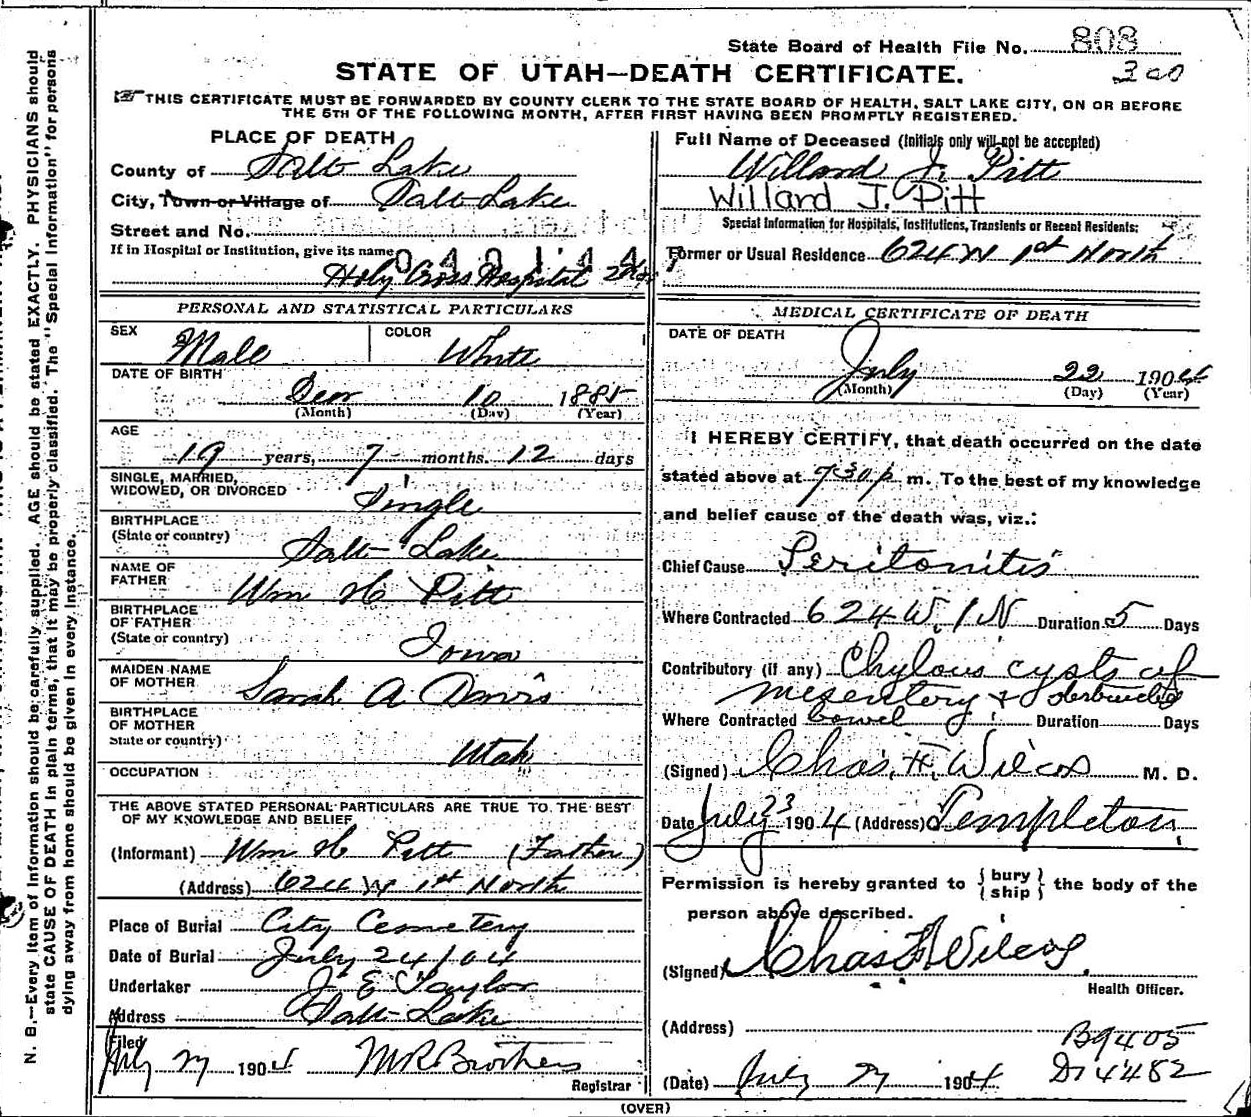 State Board of Health File No. 808
300
STATE OF UTAH—DEATH CERTIFICATE.
THIS CERTIFICATE MUST BE FORWARDED BY COUNTY CLERK TO THE STATE BOARD OF HEALTH, SALT LAKE CITY, ON OR BEFORE
THE 5TH OF THE FOLLOWING MONTH, AFTER FIRST HAVING BEEN PROMPTLY REGISTERED.
PLACE OF DEATH
County of Salt Lake
City, Town or Village of Salt Lake
Street and No.
If in Hospital or Institution, give its name
Holy Cross Hospital
Full Name of Deceased (Initials only will not be accepted)
Willard J. Pitt
Willard J. Pitt
Special Information for Hospitals, Institutions, Transients or Recent Residents:
Former or Usual Residence 624 W 1st North
PERSONAL AND STATISTICAL PARTICULARS
SEX Male
COLOR White
DATE OF BIRTH
10 1885
(Month) (Day) (Year)
AGE
19 years, 7 months. 12 days
SINGLE, MARRIED,
WIDOWED, OR DIVORCED Single
BIRTHPLACE
(State or country) Salt Lake
NAME OF
FATHER Wm H Pitt
BIRTHPLACE
OF FATHER
(State or country) Iowa
MAIDEN NAME
OF MOTHER Sarah A Davis
BIRTHPLACE
OF MOTHER
State or country) Utah
OCCUPATION
THE ABOVE STATED PERSONAL PARTICULARS ARE TRUE TO THE BEST
OF MY KNOWLEDGE AND BELIEF
(Informant) Wm H Pitt (Father)
(Address) 624 W 1st North
Place of Burial City Cemetery
Date of Burial July 24/04
Undertaker J E Taylor
Address Salt Lake
Filed
July 27 1904 M R Brothers
Registrar
MEDICAL CERTIFICATE OF DEATH
DATE OF DEATH
July 22 1904
(Month) (Day) (Year)
I HEREBY CERTIFY, that death occurred on the date
stated above at 7:30 p m. To the best of my knowledge
and belief cause of the death was, viz.:
Chief Cause Peritonitis
Where Contracted 624 W. 1 N Duration 5 Days
Contributory (if any) Chylous cysts of
mesentery &
Where Contracted bowel Duration Days
(Signed) Chas. F. Wilcox M. D.
Date July 23 1904 (Address) Templeton
Permission is hereby granted to { bury / ship } the body of the
person above described.
(Signed) Chas F Wilcox
Health Officer.
(Address)
B9405
D14482
(Date) July 27 1904
(OVER)
N. B.—Every item of information should be carefully supplied. AGE should be stated EXACTLY. PHYSICIANS should
state CAUSE OF DEATH in plain terms, that it may be properly classified. The "Special Information" for persons
dying away from home should be given in every instance.